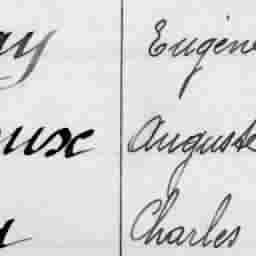 ay Eugène
oux Auguste
Charles